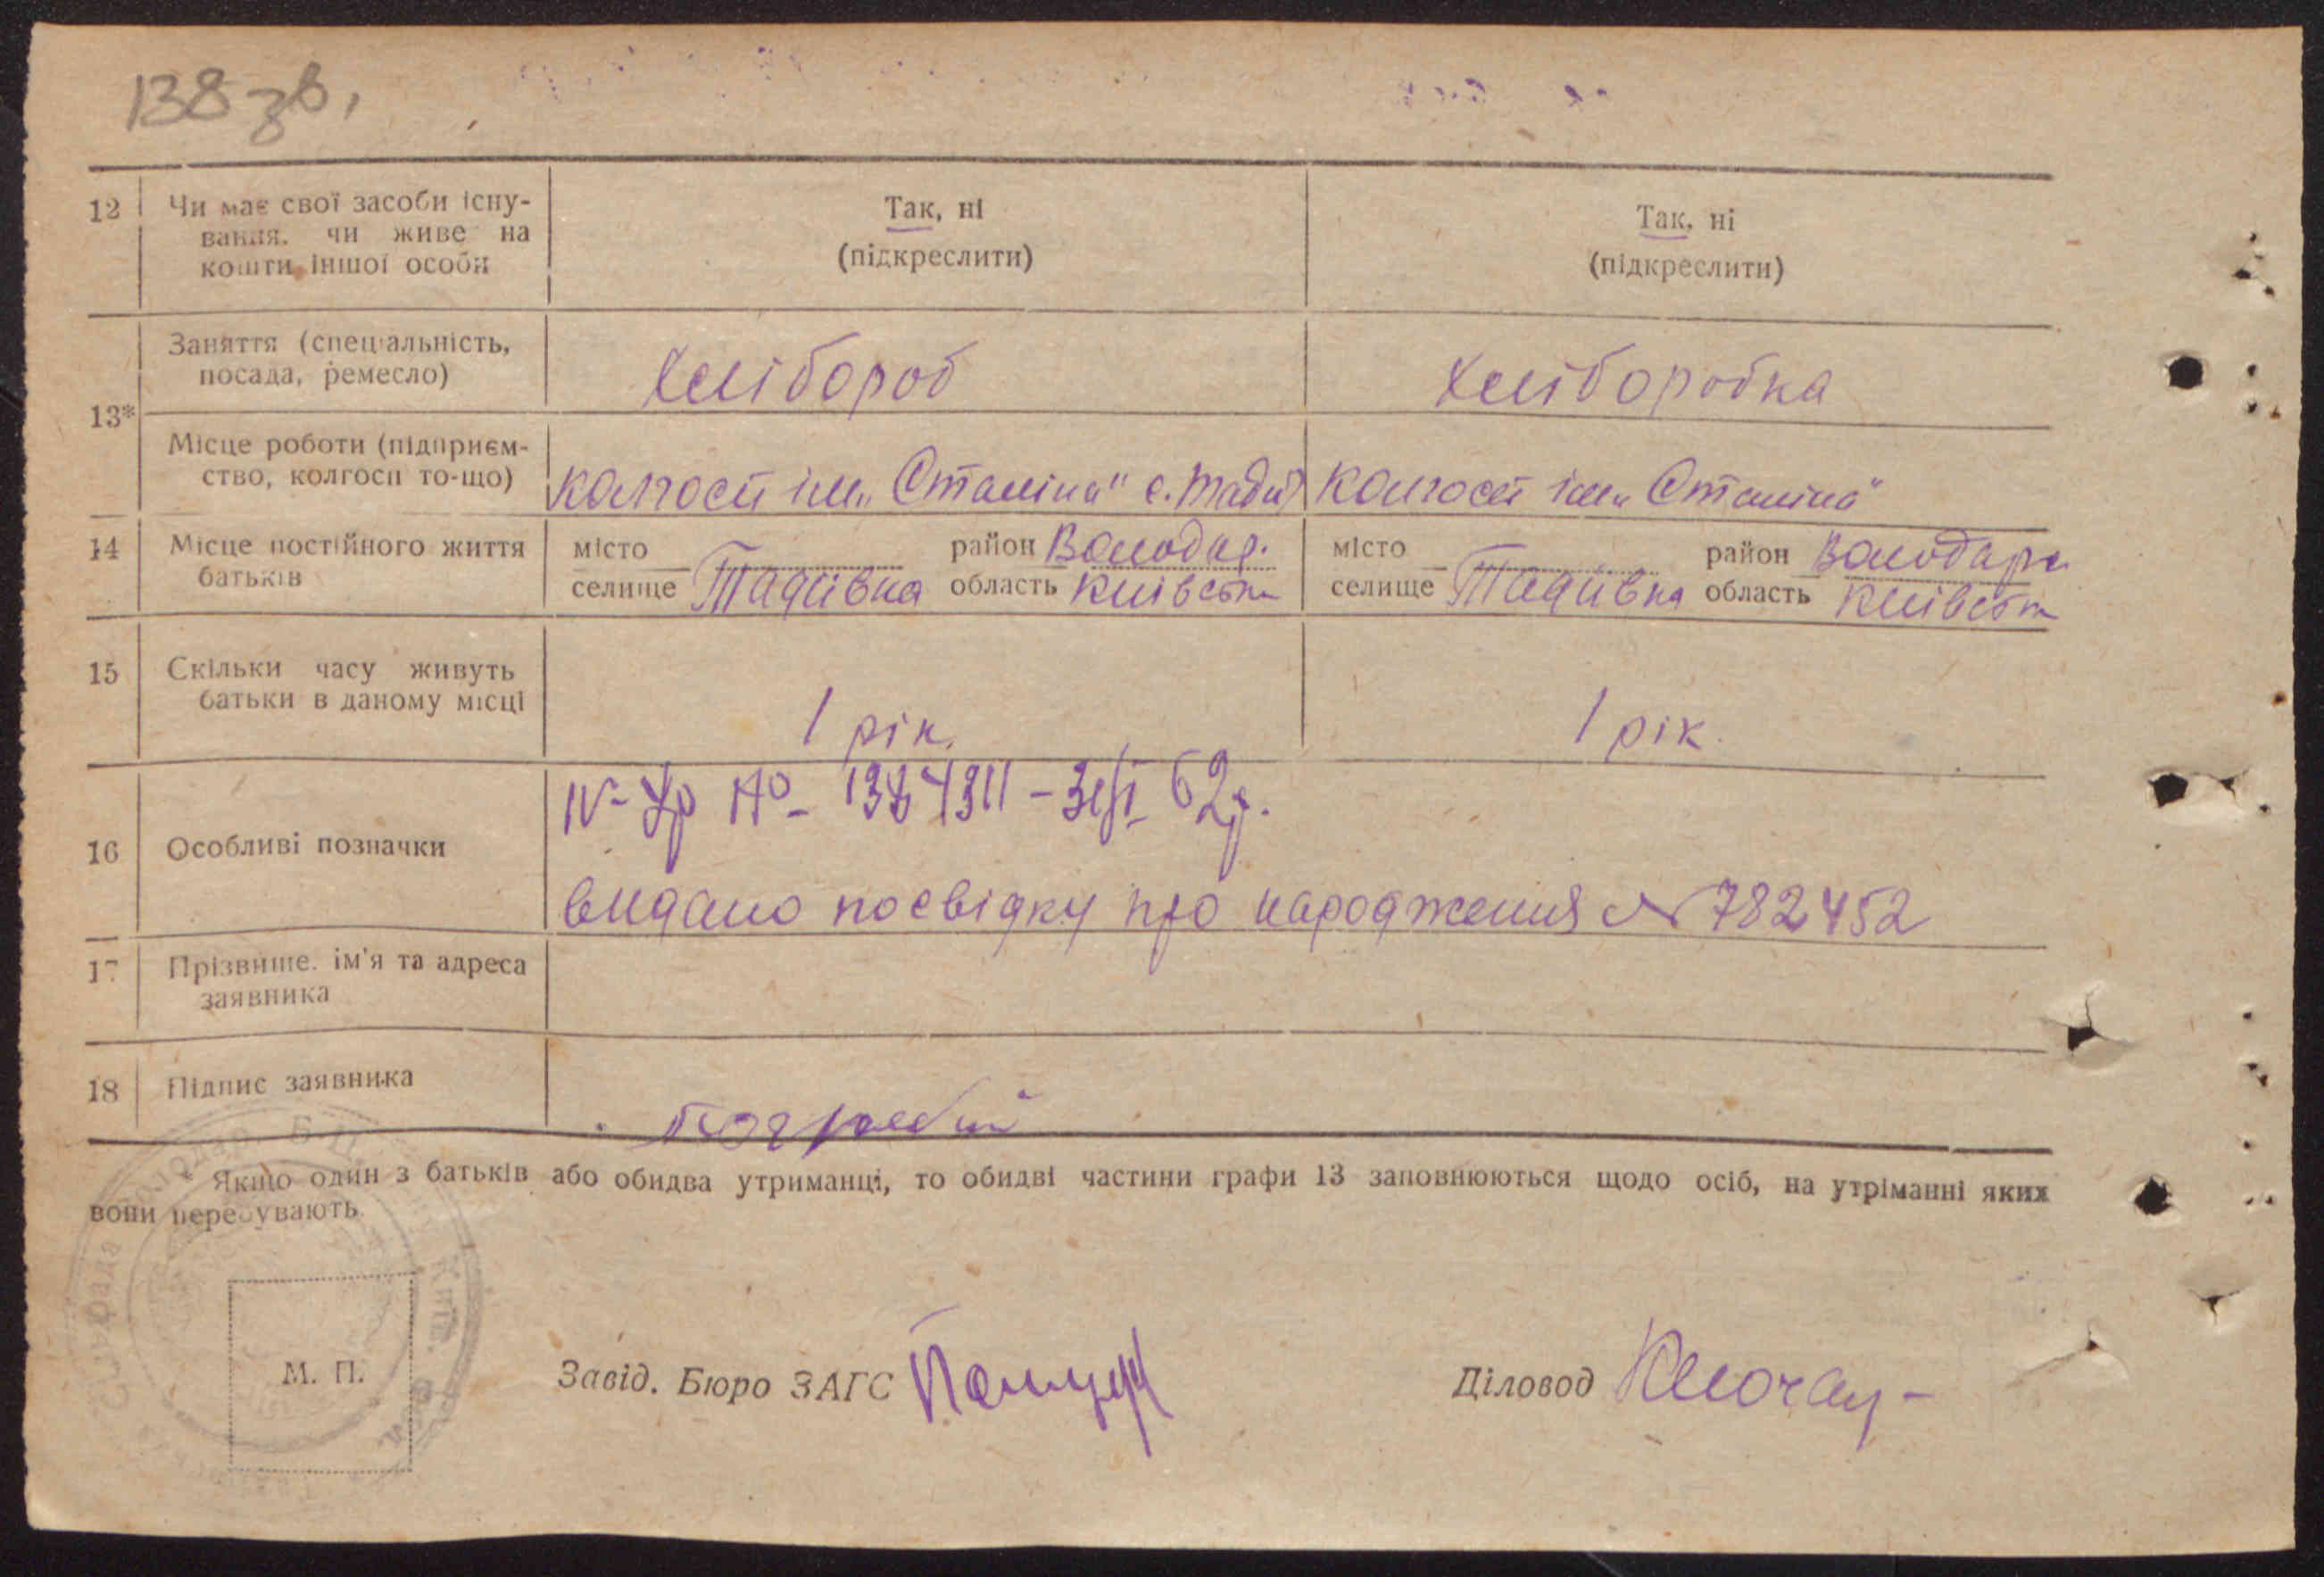 138 зв,
12 Чи має свої засоби існу-
вання. чи живе на
кошти іншої особи
Так, ні
(підкреслити)
Так, ні
(підкреслити)
13*
Заняття (спеціальність,
посада, ремесло)
Хлібороб
Хліборобка
Місце роботи (підприєм-
ство, колгосп то-що)
Колгосп ім. „Сталіна" с. Тадиї
Колгосп ім. „Сталіна"
14 Місце постійного життя
батьків
місто район Володар.
селище Тадиівка область Київська
місто район Володарс
селище Тадиівка область Київськ
15 Скільки часу живуть
батьки в даному місці
1 рік.
1 рік.
16 Особливі позначки
62р.
видано посвідку про народження № 782452
17 Прізвище. ім'я та адреса
заявника
18 Підпис заявника
Погребний
* Якщо один з батьків або обидва утриманці, то обидві частини графи 13 заповнюються щодо осіб, на утріманні яких
вони перебувають
М. П.
Завід. Бюро ЗАГС
Діловод